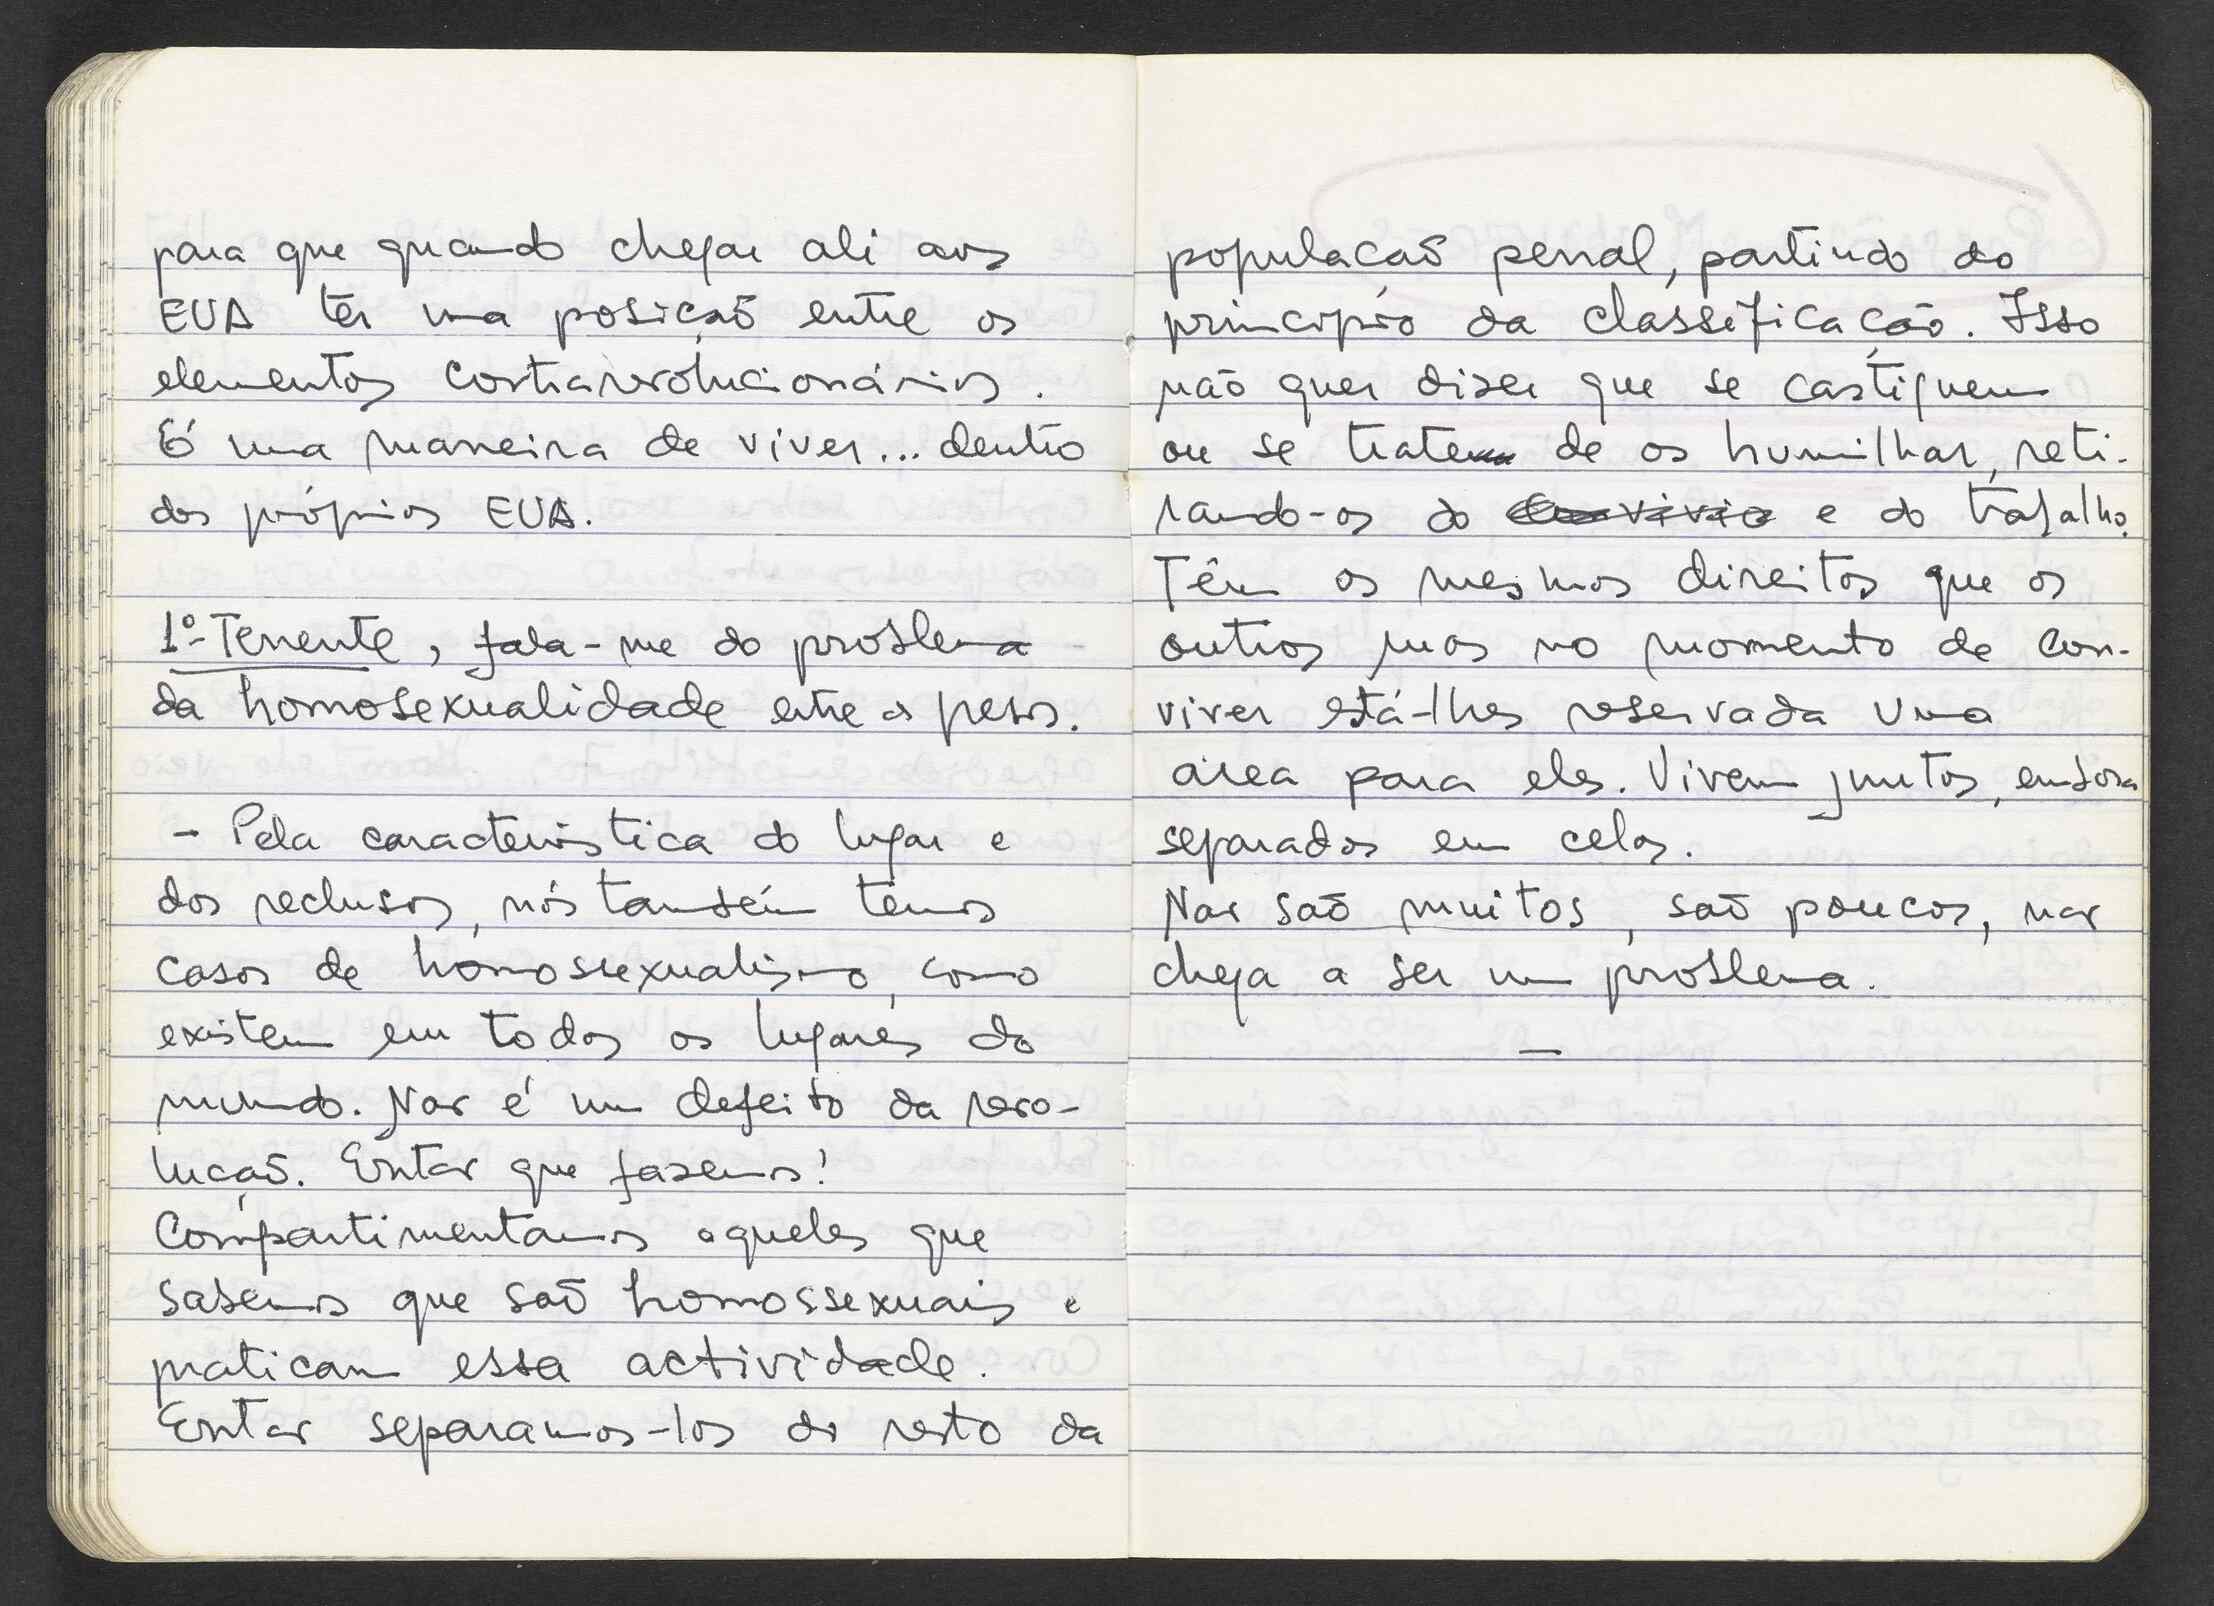 para que quando chegar ali aos
EUA ter uma posição entre os
elementos contrarevolucionários.
É uma maneira de viver... dentro
dos próprios EUA.
1º-Tenente, fala-me do problema
da homosexualidade entre os presos.
- Pela caracteristica do lugar e
dos reclusos, nós também temos
casos de homossexualismo, como
existem em todos os lugares do
mundo. Não é um defeito da revo-
lução. Então que fazemos!
Compartimentamos aqueles que
sabemos que são homossexuais e
praticam essa actividade.
Então separamos-los do resto da
população penal, partindo do
princípio da classificação. Isso
não quer dizer que se castiguem
ou se trate de os humilhar, reti-
rando-os do convivio e do trabalho.
Têm os mesmos direitos que os
outros mas no momento de con-
viver está-lhes reservada uma
área para eles. Vivem juntos, embora
separados em celas.
Não são muitos, são poucos, não
chega a ser um problema.
—